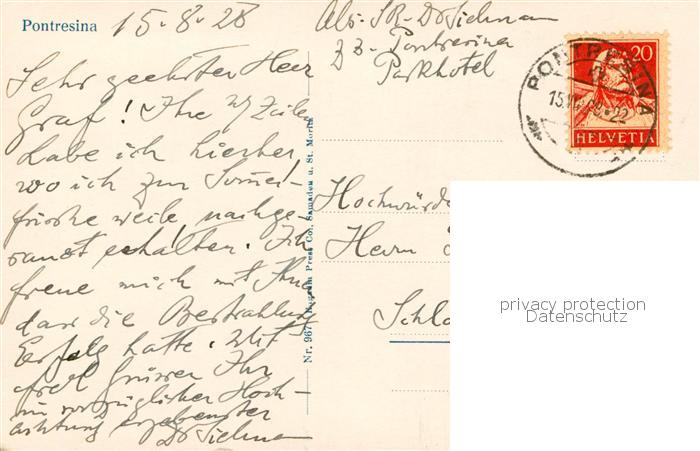 Pontresina
15.8.28
Sehr geehrter Herr
Graf! Ihre Zeilen
habe ich hierher,
wo ich zur Sommer-
frische weile, nachge-
sandt erhalten. Ich
freue mich mit Ihnen
dass die Bestrahlung
Erfolg hatte. Mit
frdl Grüssen Ihr
in vorzüglicher Hoch-
achtung ergebenster
Dr
Abs: SR-Dr
z. Z. Pontresina
Parkhotel
PONTRESINA
20
HELVETIA
Hochwürde
Herrn
Schlo
Nr. 967 Press Co., Samaden u. St. Moritz
privacy protection
Datenschutz